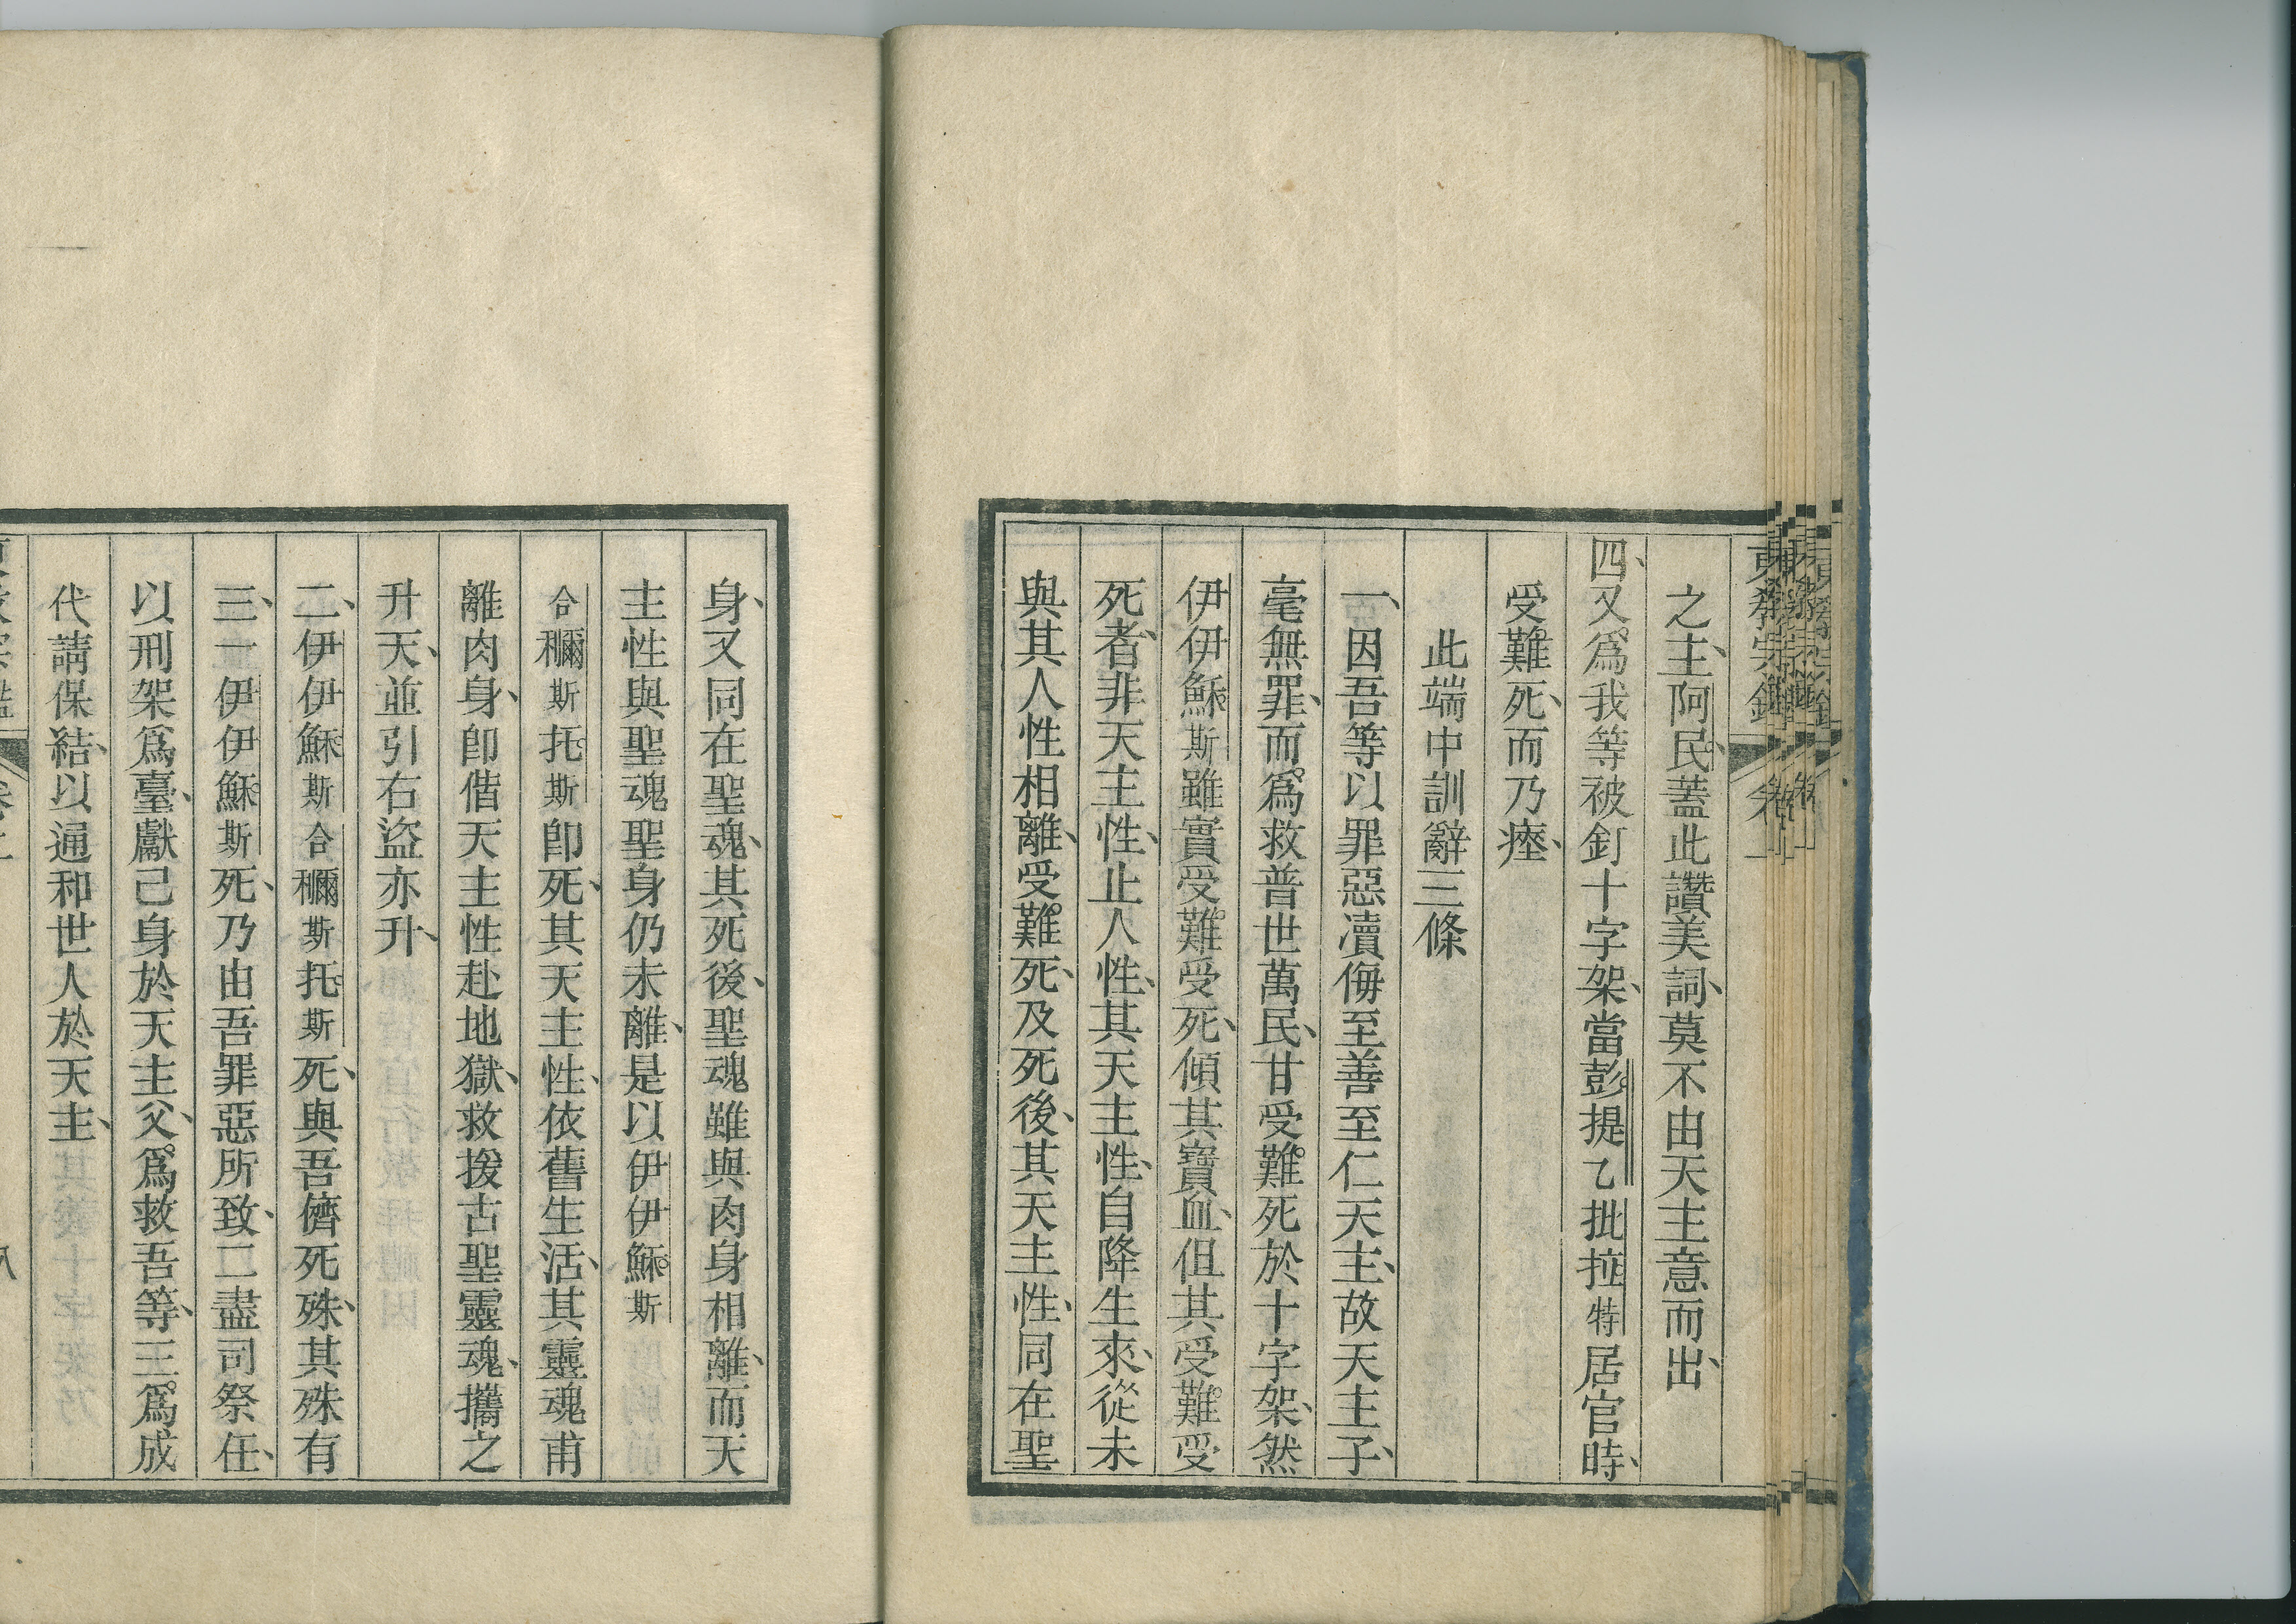 東教宗鑑
之主、阿民、蓋此讚美詞、莫不由天主意而出、
四、又爲我等被釘十字架、當彭提乙批拉特居官時、
受難死、而乃瘞、
此端中訓辭三條
一、因吾等以罪惡凟侮至善至仁天主、故天主子、
毫無罪、而爲救普世萬民、甘受難死於十字架、然
伊伊穌斯雖實受難受死、傾其寶血、但其受難受
死者、非天主性、止人性、其天主性、自降生來、從未
與其人性相離、受難死、及死後、其天主性、同在聖
身、又同在聖魂、其死後、聖魂雖與肉身相離、而天
主性與聖魂聖身仍未離、是以伊伊穌斯
合穪斯托斯卽死、其天主性、依舊生活、其靈魂甫
離肉身、卽偕天主性赴地獄、救援古聖靈魂、攜之
升天、並引右盜亦升、
二、伊伊穌斯合穪斯托斯死、與吾儕死殊、其殊有
三、一伊伊穌斯死、乃由吾罪惡所致、二盡司祭任、
以刑架爲臺、獻己身於天主父、爲救吾等、三爲成
代請保結、以通和世人於天主、